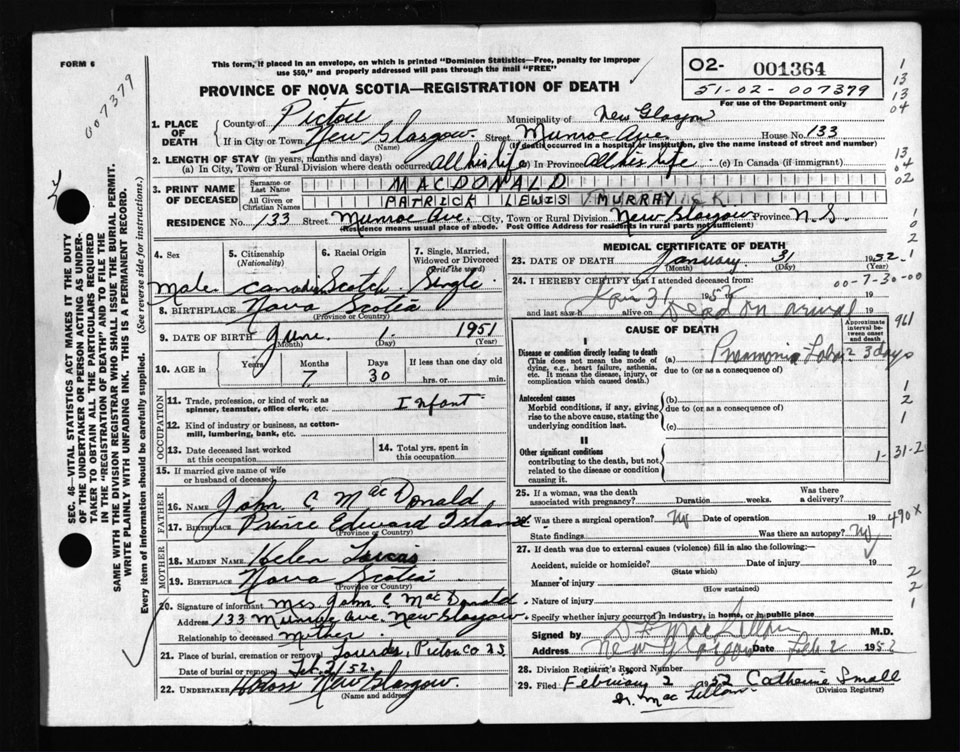 FORM 6
This form, if placed in an envelope, on which is printed "Dominion Statistics—Free, penalty for improper
use $50," and properly addressed will pass through the mail "FREE"
PROVINCE OF NOVA SCOTIA—REGISTRATION OF DEATH
02- 001364
51-02-007379
For use of the Department only
007379
1
13
13
04
13
04
02
1. PLACE OF DEATH
County of Pictou Municipality of New Glasgow
If in City or Town New Glasgow (Name) Street Munroe Ave. House No. 133
(If death occurred in a hospital or institution, give the name instead of street and number)
2. LENGTH OF STAY (in years, months and days)
(a) In City, Town or Rural Division where death occurred All his life (b) In Province All his life (c) In Canada (if immigrant)
3. PRINT NAME OF DECEASED
Surname or Last Name MACDONALD
All Given or Christian Names PATRICK LEWIS MURRAY
RESIDENCE No. 133 Street Munroe Ave. City, Town or Rural Division New Glasgow Province N.S.
(Residence means usual place of abode. Post Office Address for residents in rural parts not sufficient)
4. Sex Male
5. Citizenship (Nationality) Canadian
6. Racial Origin Scotch
7. Single, Married, Widowed or Divorced (write the word) Single
8. BIRTHPLACE Nova Scotia
(Province or Country)
9. DATE OF BIRTH June (Month) 1 (Day) 1951 (Year)
10. AGE in Years Months 7 Days 30 If less than one day old hrs. or min.
OCCUPATION
11. Trade, profession, or kind of work as spinner, teamster, office clerk, etc. Infant
12. Kind of industry or business, as cotton-mill, lumbering, bank, etc.
13. Date deceased last worked at this occupation
14. Total yrs. spent in this occupation
15. If married give name of wife or husband of deceased
FATHER
16. NAME John C. MacDonald
17. BIRTHPLACE Prince Edward Island.
(Province or Country)
MOTHER
18. MAIDEN NAME Helen Lucas
19. BIRTHPLACE Nova Scotia
(Province or Country)
20. Signature of informant Mrs John C. MacDonald.
Address 133 Munroe Ave. New Glasgow.
Relationship to deceased Mother
21. Place of burial, cremation or removal Lourdes, Pictou Co. N.S.
Date of burial or removal Feb. 2/52.
22. UNDERTAKER New Glasgow.
(Name and address)
MEDICAL CERTIFICATE OF DEATH
23. DATE OF DEATH January (Month) 31 (Day) 1952. (Year)
24. I HEREBY CERTIFY that I attended deceased from:
00-7-30-00
Jan 31 1952 19
and last saw h alive on Dead on arrival 19
961
CAUSE OF DEATH
Approximate interval between onset and death
I
Disease or condition directly leading to death
(This does not mean the mode of dying, e.g., heart failure, asthenia, etc. It means the disease, injury, or complication which caused death.)
(a) Pneumonia Lobar 3 days
due to (or as a consequence of)
Antecedent causes
Morbid conditions, if any, giving rise to the above cause, stating the underlying condition last.
(b)
due to (or as a consequence of)
(c)
II
Other significant conditions
contributing to the death, but not related to the disease or condition causing it.
1-31-2
25. If a woman, was the death associated with pregnancy? Duration weeks. Was there a delivery?
26. Was there a surgical operation? No Date of operation 19
490X
State findings Was there an autopsy? No
27. If death was due to external causes (violence) fill in also the following:—
Accident, suicide or homicide? (State which) Date of injury 19
Manner of injury
(How sustained)
Nature of injury
Specify whether injury occurred in industry, in home, or in public place
Signed by M.D.
Address New Glasgow Date Feb 2 1952
28. Division Registrar's Record Number
29. Filed February 2 1952 Catherine Small
(Division Registrar)
MacLellan
SEC. 46—VITAL STATISTICS ACT MAKES IT THE DUTY
OF THE UNDERTAKER OR PERSON ACTING AS UNDER-
TAKER TO OBTAIN ALL THE PARTICULARS REQUIRED
IN THE "REGISTRATION OF DEATH" AND TO FILE THE
SAME WITH THE DIVISION REGISTRAR WHO SHALL ISSUE THE BURIAL PERMIT.
WRITE PLAINLY WITH UNFADING INK. THIS IS A PERMANENT RECORD.
Every item of information should be carefully supplied. (See reverse side for instructions.)